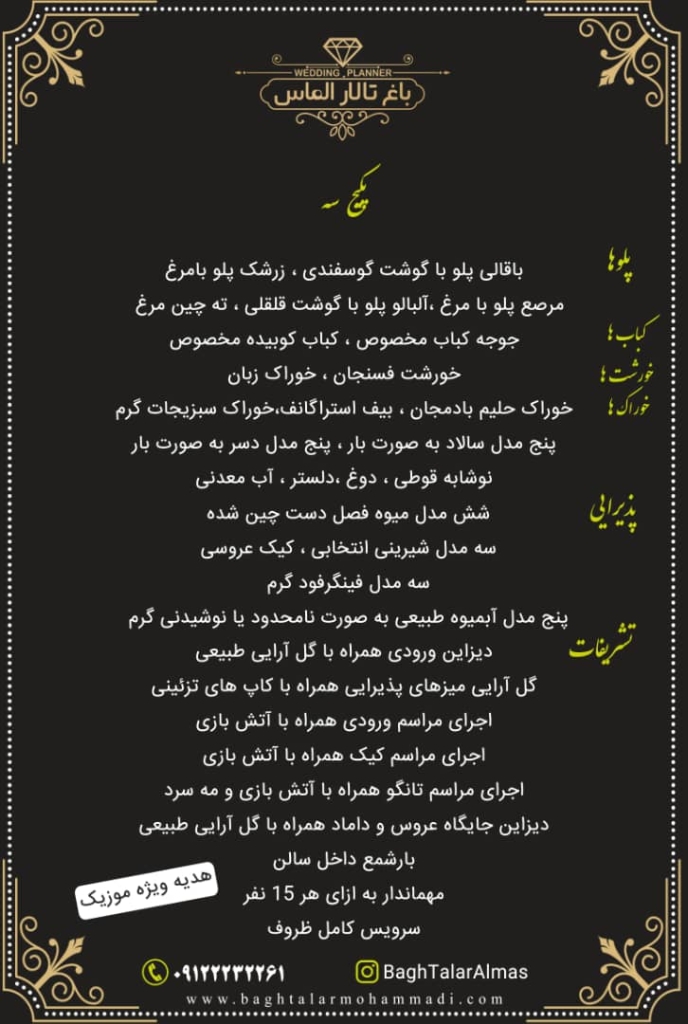 WEDDING PLANNER
باغ تالار الماس
پکیج سه
پلوها
باقالی پلو با گوشت گوسفندی ، زرشک پلو بامرغ
مرصع پلو با مرغ ،آلبالو پلو با گوشت قلقلی ، ته چین مرغ
کباب ها
جوجه کباب مخصوص ، کباب کوبیده مخصوص
خورشت ها
خورشت فسنجان ، خوراک زبان
خوراک ها
خوراک حلیم بادمجان ، بیف استراگانف،خوراک سبزیجات گرم
پنج مدل سالاد به صورت بار ، پنج مدل دسر به صورت بار
نوشابه قوطی ، دوغ ،دلستر ، آب معدنی
پذیرایی
شش مدل میوه فصل دست چین شده
سه مدل شیرینی انتخابی ، کیک عروسی
سه مدل فینگرفود گرم
پنج مدل آبمیوه طبیعی به صورت نامحدود یا نوشیدنی گرم
تشریفات
دیزاین ورودی همراه با گل آرایی طبیعی
گل آرایی میزهای پذیرایی همراه با کاپ های تزئینی
اجرای مراسم ورودی همراه با آتش بازی
اجرای مراسم کیک همراه با آتش بازی
اجرای مراسم تانگو همراه با آتش بازی و مه سرد
دیزاین جایگاه عروس و داماد همراه با گل آرایی طبیعی
بارشمع داخل سالن
مهماندار به ازای هر 15 نفر
سرویس کامل ظروف
هدیه ویژه موزیک
۰۹۱۲۲۲۳۲۲۶۱
BaghTalarAlmas
www.baghtalarmohammadi.com